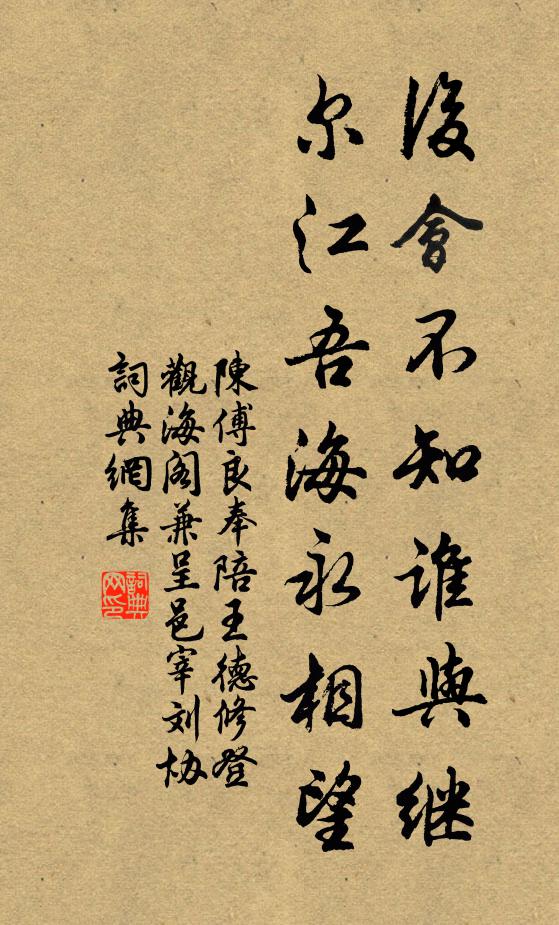 後會不知誰與继
尔江吾海永相望
陳傅良奉陪王德修登
觀海阁兼呈邑宰刘协
詞典網集
詞典网印